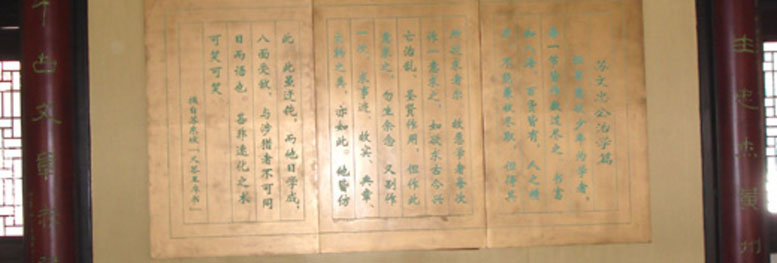 苏文忠公治学篇
卑意欲少年为学者，
每一书皆作数过尽之。书富
如入海，百货皆有，人之精
力，不能兼收尽取，但得其
所欲求者尔。故愿学者每次
作一意求之。如欲求古今兴
亡治乱、圣贤作用，但作此
意求之，勿生余念。又别作
一次，求事迹、故实、典章、
文物之类，亦如此。他皆仿
此。此虽迂钝，而他日学成，
八面受敌，与涉猎者不可同
日而语也。甚非速化之术
可笑可笑。
摘自苏东坡「又答王庠书」
千古文章
忠杰黄州